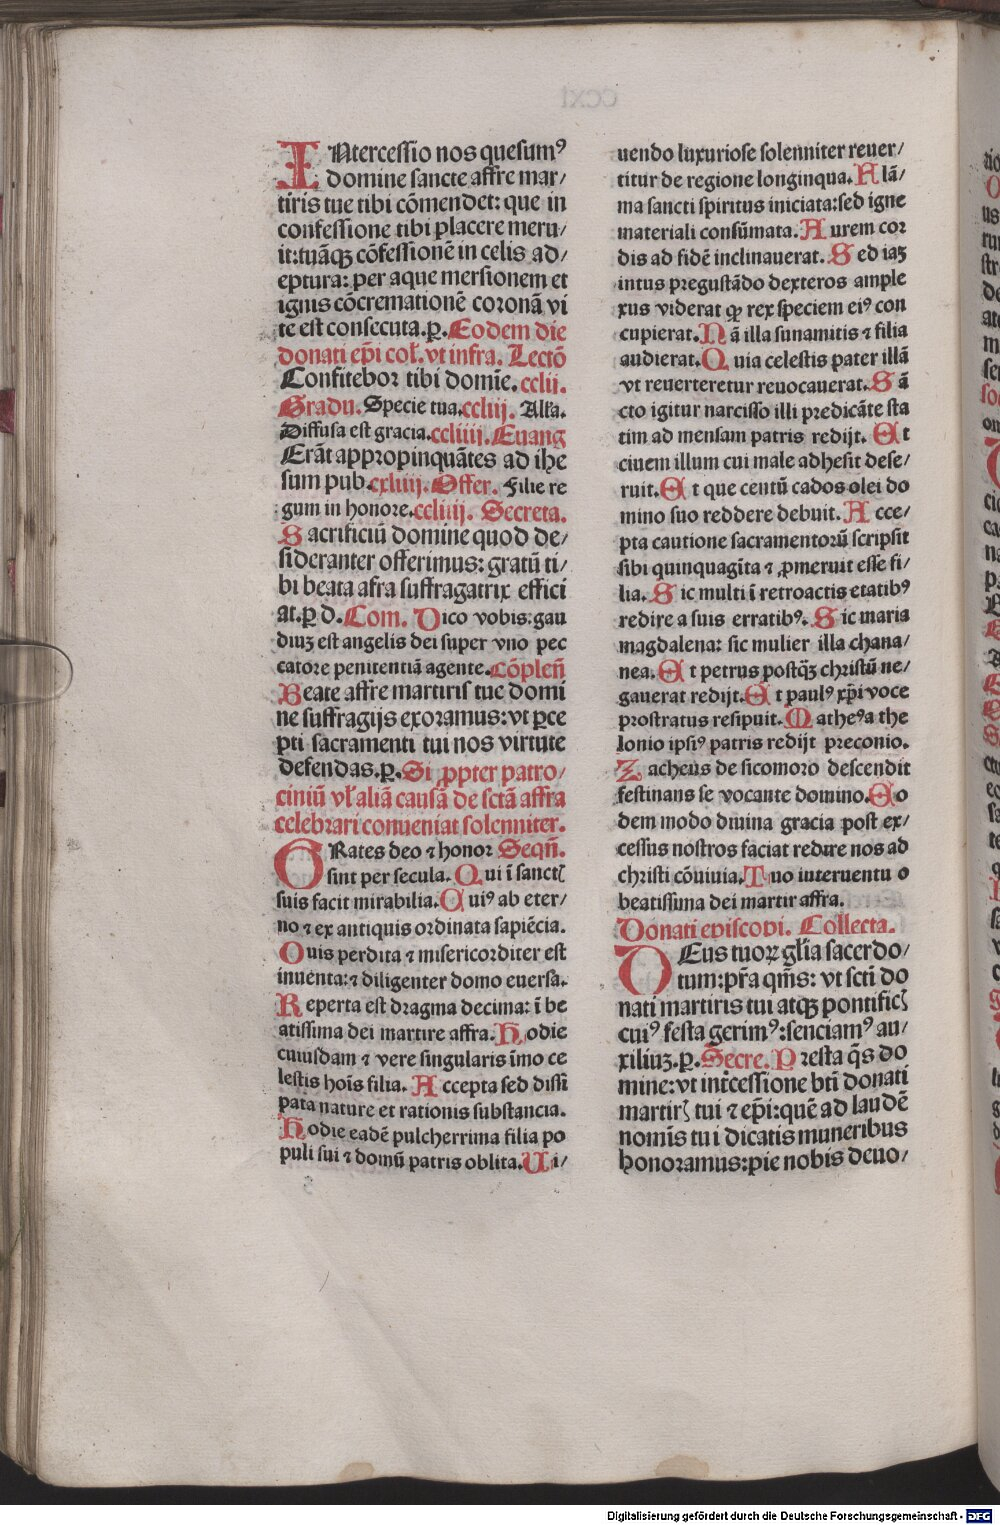 INtercessio nos quesumꝰ
domine sancte affre mar/
tiris tue tibi cōmendet: que in
confessione tibi placere meru/
it: tuāqꝫ cōfessionē in celis ad/
eptura: per aque mersionem et
ignis cōcremationē coronā vi
te est consecuta.p. Eodem die
donati ep̄i col̛. vt infra. Lectō
Confitebor tibi domīe. cclii.
Gradu. Specie tua. ccliij. Alla.
Diffusa est gracia. ccliiij. Euang
Erāt appropinquātes ad ihe
sum pub. cxliiij. Offer. Filie re
gum in honore. ccliiij. Secreta.
Sacrificiū domine quod de/
sideranter offerimus: gratū ti/
bi beata afra suffragatrix effici
at. ꝑ d. Com. Dico vobis: gau
diuꝫ est angelis dei super vno pec
catore penitentiā agente. Cōpleñ
Beate affre martiris tue domi
ne suffragijs exoramus: vt ꝑce
pti sacramenti tui nos virtute
defendas. ꝑ. Si ꝓpter patro/
ciniū vl̛ aliā causā de sctā affra
celebrari conueniat solenniter.
GRates deo ⁊ honor Seqñ.
sint per secula. Qui ī sanctꝭ
suis facit mirabilia. Quiꝰ ab eter/
no ⁊ ex antiquis ordinata sapiēcia.
Ouis perdita ⁊ misericorditer est
inuenta: ⁊ diligenter domo euersa.
Reperta est dragma decima: ī be
atissima dei martire affra. Hodie
cuiusdam ⁊ vere singularis īmo ce
lestis hoīs filia. Accepta sed dissi
pata nature et rationis substancia.
Hodie eadē pulcherrima filia po
puli sui ⁊ domū patris oblita. Ui/
uendo luxuriose solenniter reuer/
titur de regione longinqua. Alā/
ma sancti spiritus iniciata: sed igne
materiali consūmata. Aurem cor
dis ad fidē inclinauerat. Sed iaꝫ
intus pregustādo dexteros ample
xus viderat ꝙ rex speciem eiꝰ con
cupierat. Nā illa sunamitis ⁊ filia
audierat. Quia celestis pater illā
vt reuerteretur reuocauerat. Sā
cto igitur narcisso illi predicāte sta
tim ad mensam patris redijt. Et
ciuem illum cui male adhesit dese/
ruit. Et que centū cados olei do
mino suo reddere debuit. Acce/
pta cautione sacramentorū scripsit
sibi quinquagīta ⁊ ꝓmeruit esse fi/
lia. Sic multi ī retroactis etatibꝰ
redire a suis erratibꝰ. Sic maria
magdalena: sic mulier illa chana/
nea. Et petrus postqꝫ christū ne/
gauerat redijt. Et paulꝰ xp̄i voce
prostratus resipuit. Matheꝰ a the
lonio ipsiꝰ patris redijt preconio.
Zacheus de sicomoro descendit
festinans se vocante domino. Eo
dem modo diuina gracia post ex/
cessus nostros faciat redire nos ad
christi cōuiuia. Tuo interuentu o
beatissima dei martir affra.
Donati episcopi. Collecta.
DEus tuoꝝ gl̄ia sacerdo/
tum: pr̄a qm̄s: vt scti do
nati martiris tui atqꝫ pontificꝭ
cuiꝰ festa gerimꝰ: senciamꝰ au/
xiliuꝫ. ꝑ. Secre. Presta q̄s do
mine: vt int̄cessione bt̄i donati
martirꝭ tui ⁊ ep̄i: quē ad laudē
nomīs tui dicatis muneribus
honoramus: pie nobis deuo/
Digitalisierung gefördert durch die Deutsche Forschungsgemeinschaft - DFG